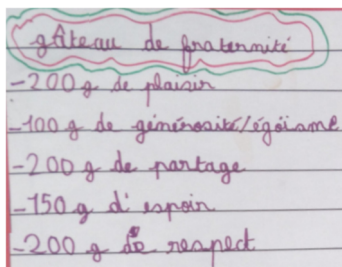 gâteau de fraternité
-200 g de plaisir
-100 g de générosité/égoïsme
-200 g de partage
-150 g d'espoir
-200 g de respect